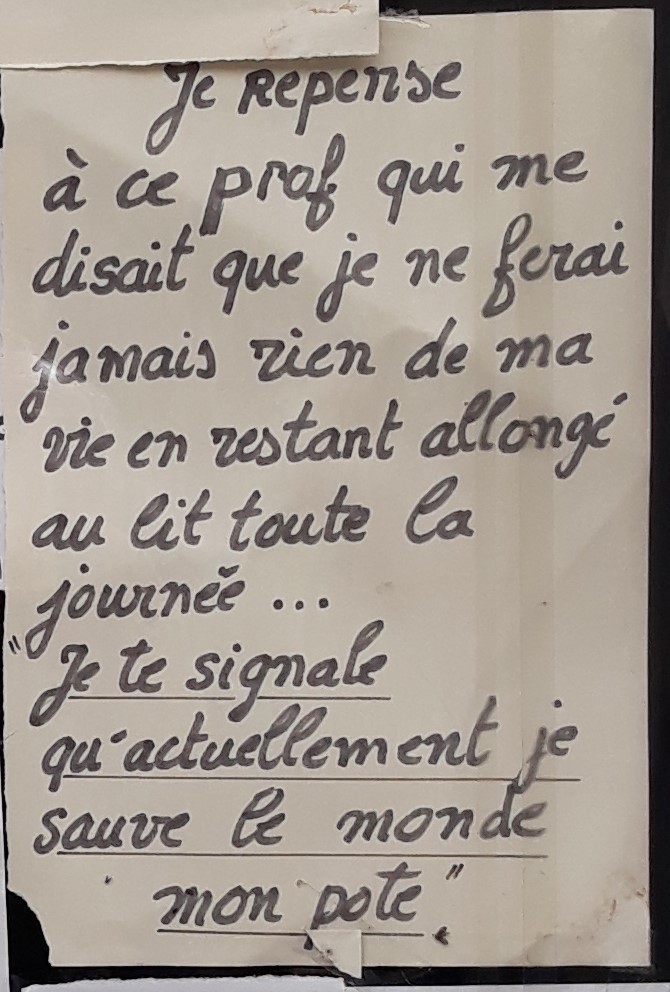 Je Repense
à ce prof qui me
disait que je ne ferai
jamais rien de ma
vie en restant allongé
au lit toute la
journée ...
"Je te signale
qu'actuellement je
sauve le monde
mon pote".